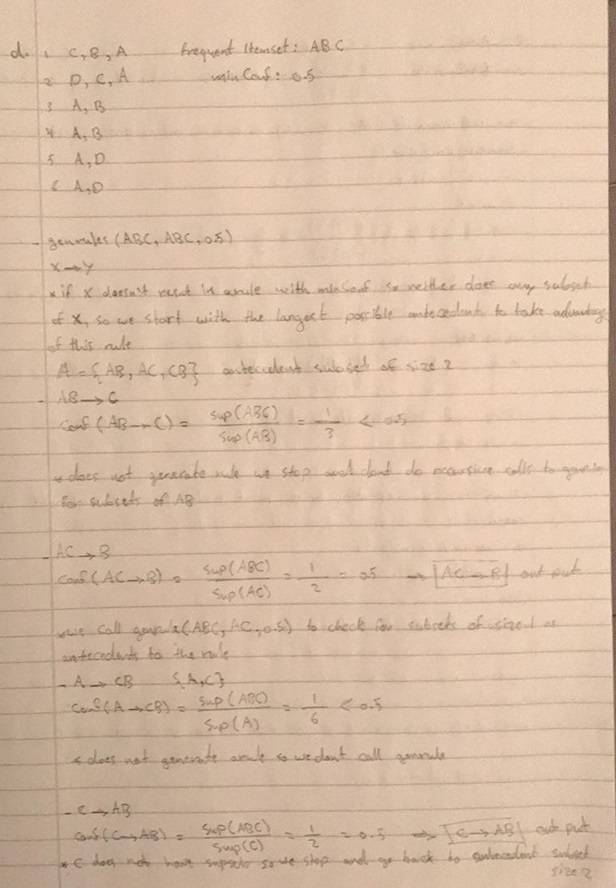 d. 1 C, B, A    frequent Itemset: ABC
2 D, C, A    minConf: 0.5
3 A, B
4 A, B
5 A, D
6 A, D
- genrules (ABC, ABC, 0.5)
X → Y
* if X doesn't result in a rule with minConf so neither does any subset
of X, so we start with the largest possible antecedent to take advantage
of this rule
A = {AB, AC, CB} antecedent subset of size 2
- AB → C
Conf (AB → C) = sup(ABC) / sup(AB) = 1/3 < 0.5
* does not generate rule we stop and dont do recursive calls to
for subsets of AB
- AC → B
Conf (AC → B) = sup(ABC) / sup(AC) = 1/2 = 0.5 → AC → B output
*we call genrule(ABC, AC, 0.5) to check for subsets of size 1 as
antecedents to the rule
- A → CB    {A, C}
Conf (A → CB) = sup(ABC) / sup(A) = 1/6 < 0.5
* does not generate a rule so we dont call genrule
- C → AB
conf (C → AB) = sup(ABC) / sup(C) = 1/2 = 0.5 → C → AB output
* C does not have so we stop and go back to subset
size 2